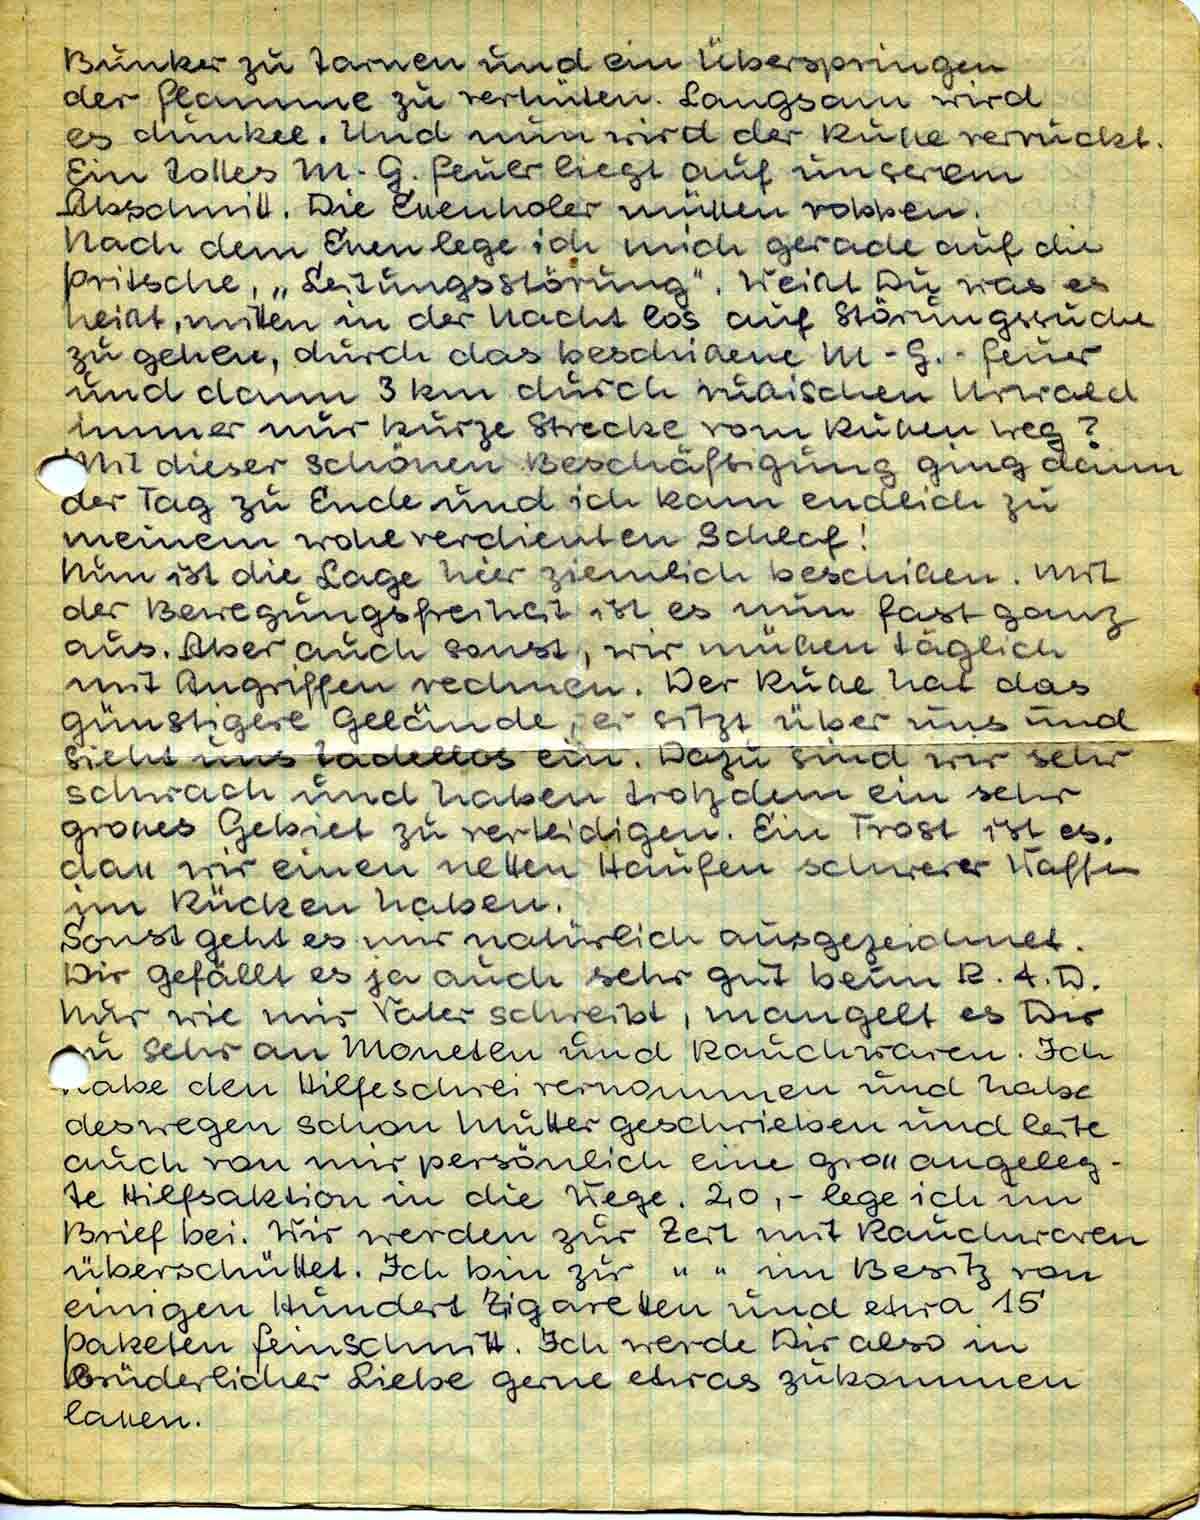 Bunker zu tarnen und ein Überspringen
der Flamme zu verhüten. Langsam wird
es dunkel. Und nun wird der Russe verrückt.
Ein tolles M.-G. Feuer liegt auf unserem
Abschnitt. Die Essenholer müssen robben.
Nach dem Essen lege ich mich gerade auf die
Pritsche, „Leitungsstörung“. Weißt Du was es
heißt, mitten in der Nacht los auf Störungssuche
zu gehen, durch das beschissene M-G.-Feuer
und dann 3 km durch russischen Urwald
immer nur kurze Strecke vom Russen weg?
Mit dieser schönen Beschäftigung ging dann
der Tag zu Ende und ich kam endlich zu
meinem wohlverdienten Schlaf!
Nun ist die Lage hier ziemlich beschissen. Mit
der Bewegungsfreiheit ist es nun fast ganz
aus. Aber auch sonst, wir müssen täglich
mit Angriffen rechnen. Der Russe hat das
günstigere Gelände, er sitzt über uns und
sieht uns tadellos ein. Dazu sind wir sehr
schwach und haben trotzdem ein sehr
grosses Gebiet zu verteidigen. Ein Trost ist es,
dass wir einen netten Haufen schwerer Waffen
im Rücken haben.
Sonst geht es mir natürlich ausgezeichnet.
Dir gefällt es ja auch sehr gut beim R.A.D.
Nur wie mir Vater schreibt, mangelt es Dir
zu sehr an Moneten und Rauchwaren. Ich
habe den Hilfeschrei vernommen und habe
deswegen schon Mutter geschrieben und leite
auch von mir persönlich eine gross angeleg-
te Hilfsaktion in die Wege. 20,- lege ich im
Brief bei. Wir werden zur Zeit mit Rauchwaren
überschüttet. Ich bin zur " " im Besitz von
einigen Hundert Zigaretten und etwa 15
Paketen Feinschnitt. Ich werde Dir also in
brüderlicher Liebe gerne etwas zukommen
lassen.